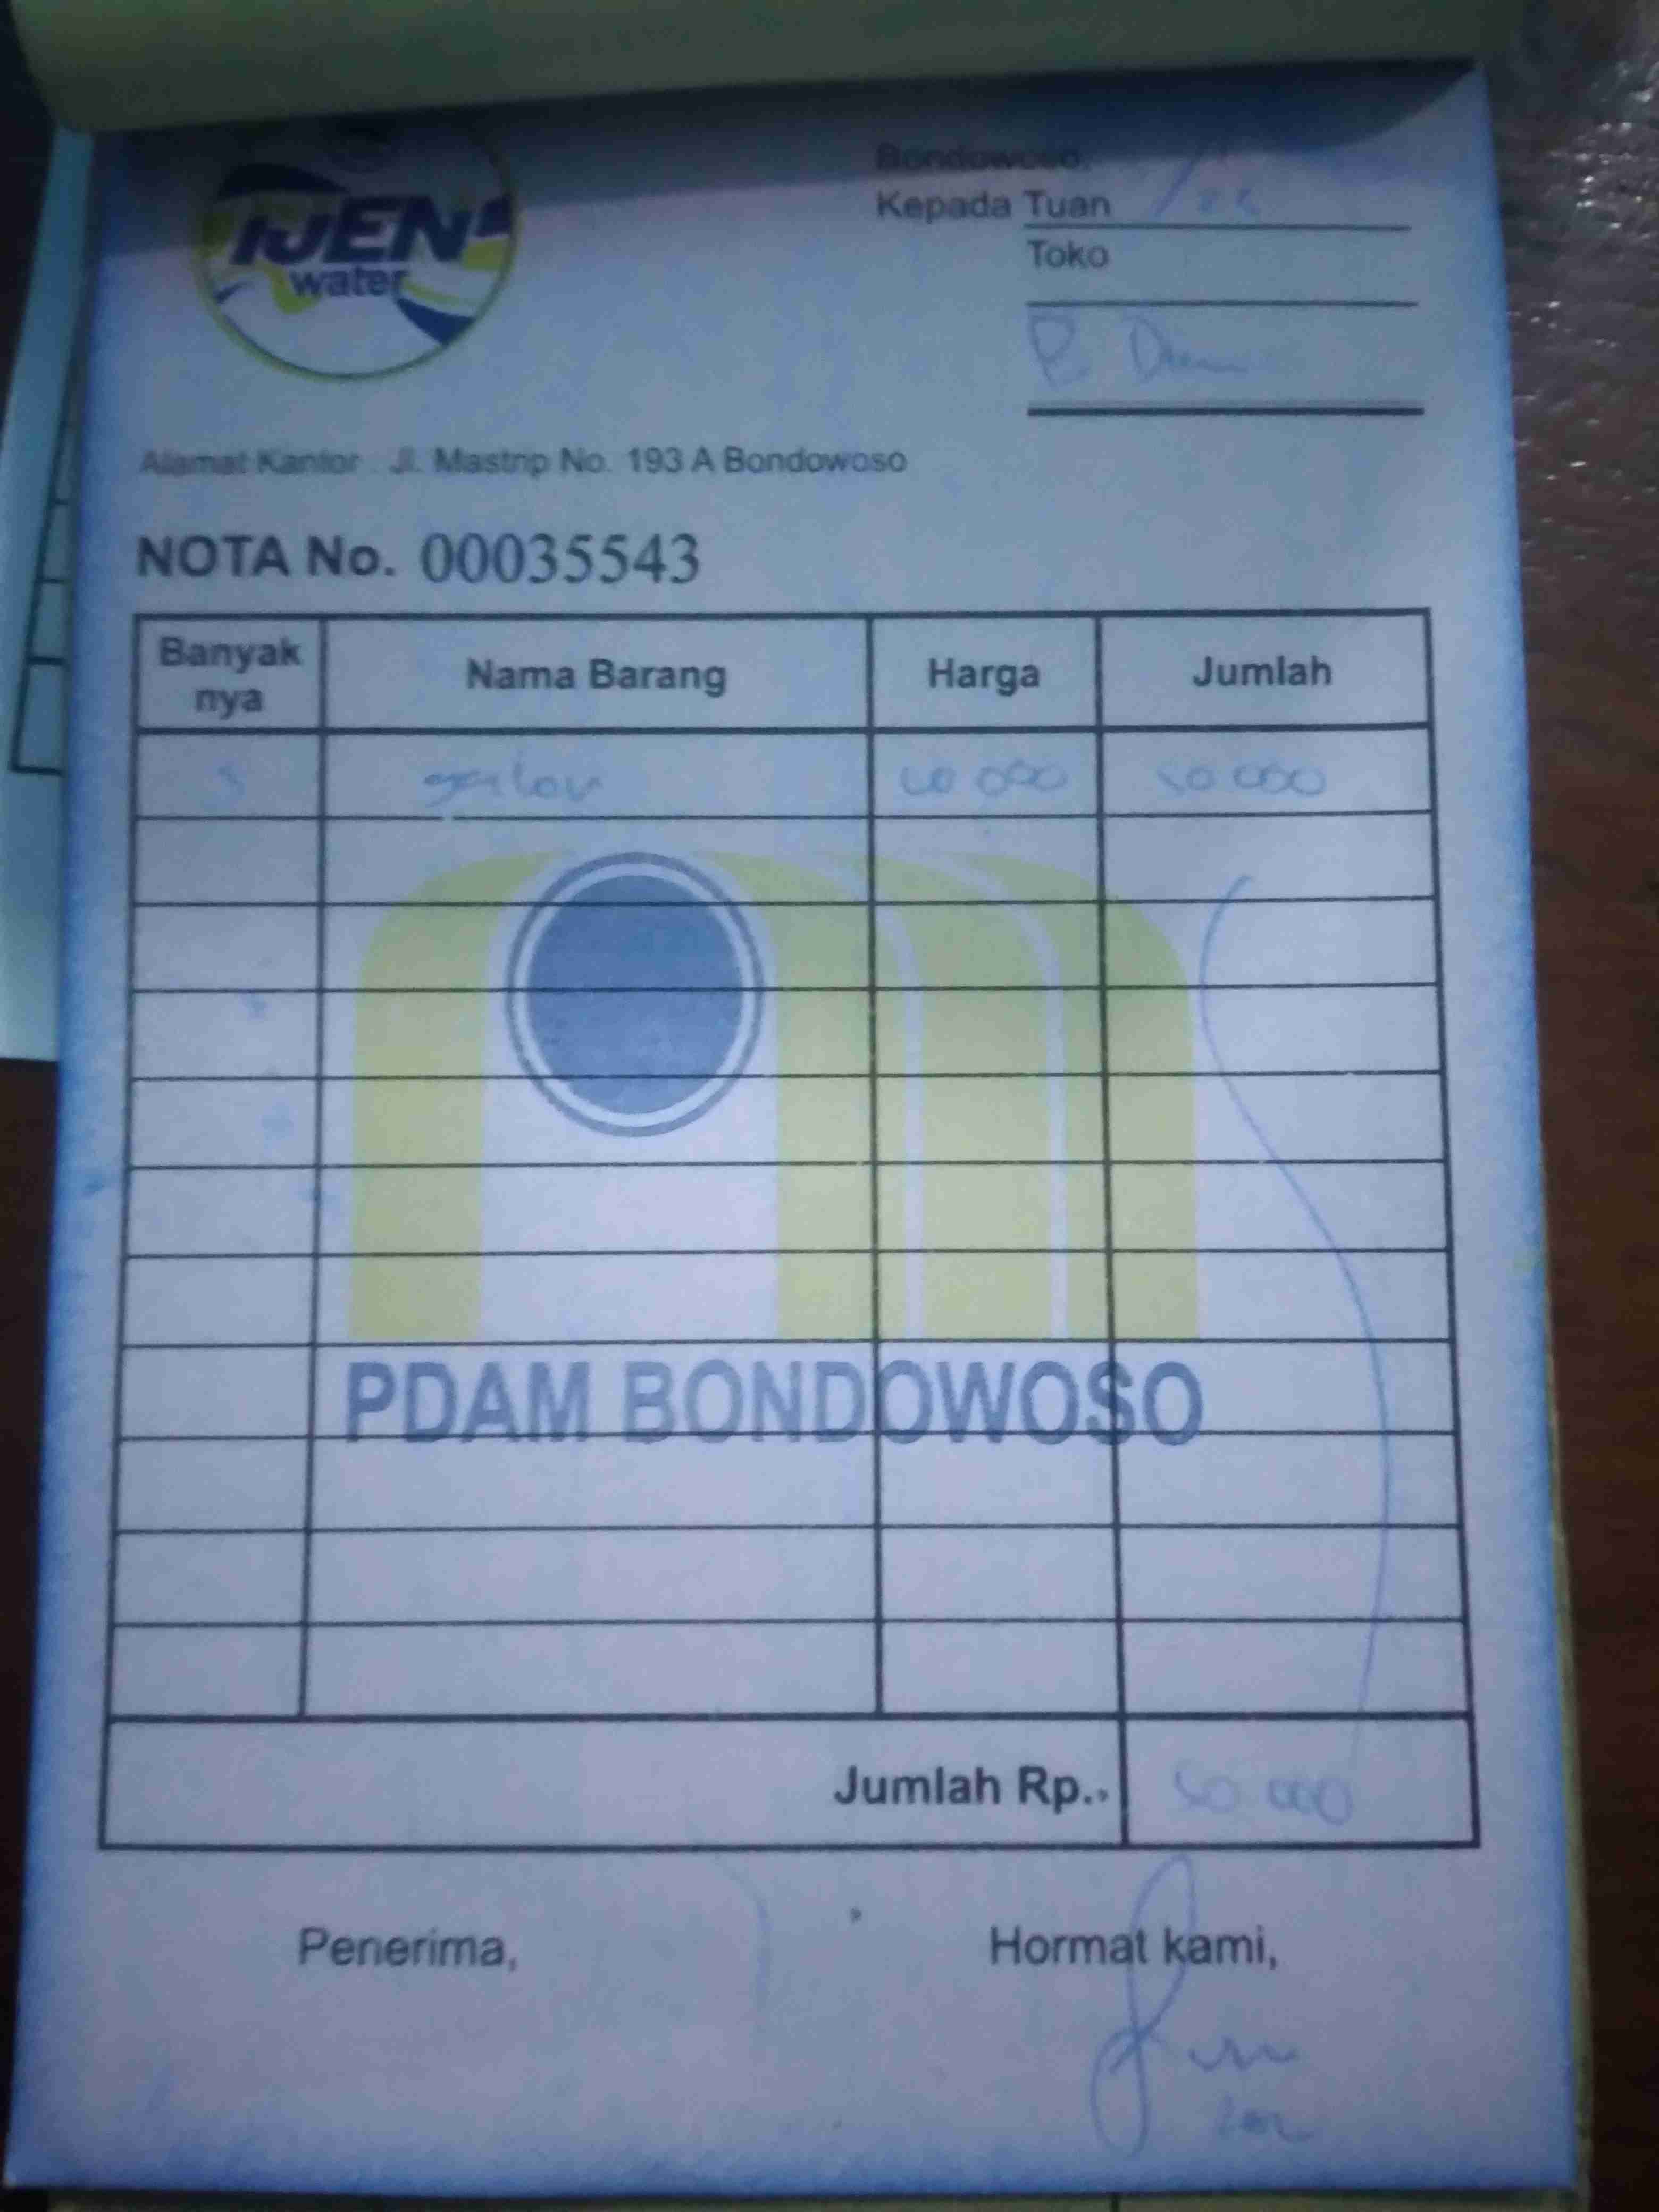 IJEN
water
Bondowoso,
Kepada Tuan
Toko
P. D
Alamat Kantor : Jl. Mastrip No. 193 A Bondowoso
NOTA No. 00035543
Banyak nya Nama Barang Harga Jumlah
5 galon 10 000 50 000
PDAM BONDOWOSO
Jumlah Rp. 50 000
Penerima, Hormat kami,